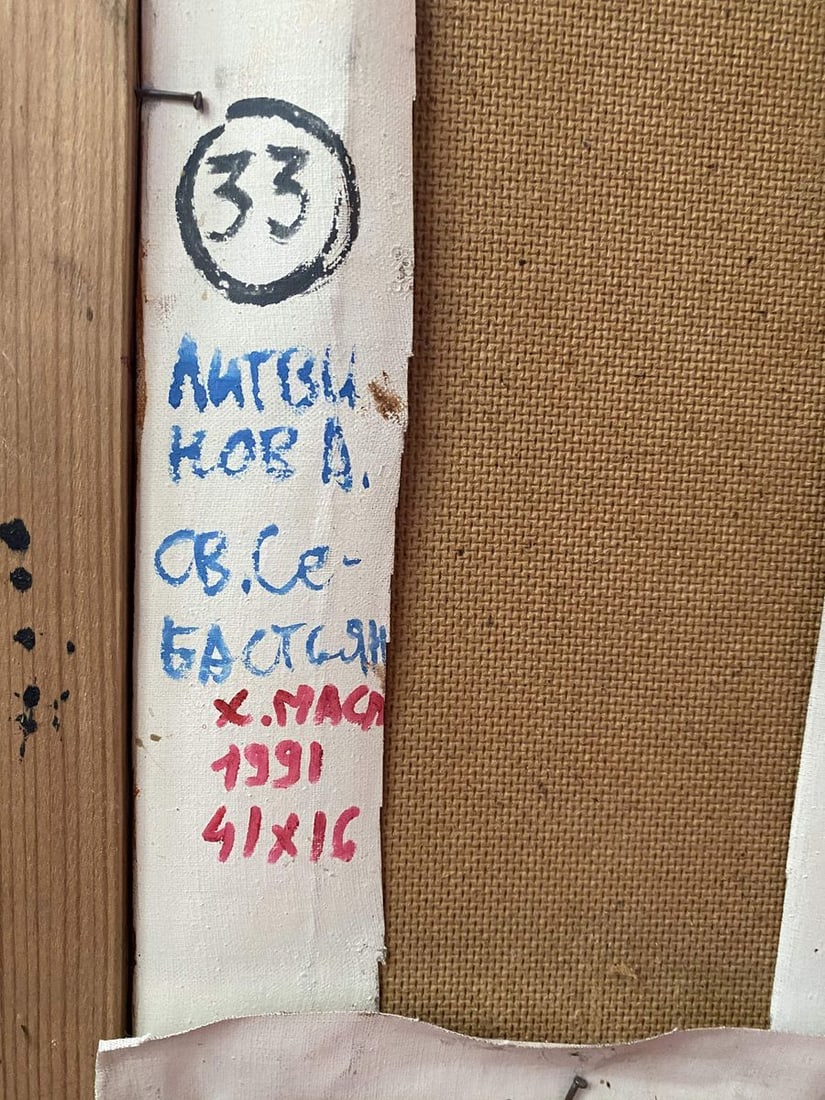 33
ЛИТВИ
НОВ А.
СВ. Се-
БАСТЬЯН
Х. МАСЛ
1991
41х16